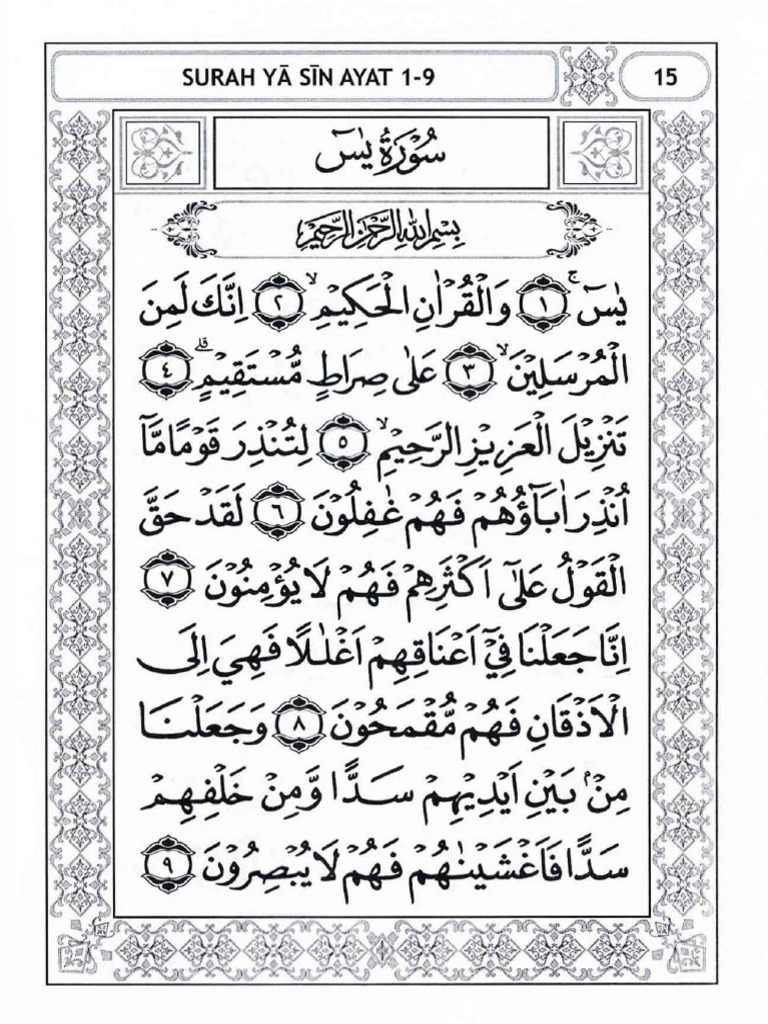 SURAH YĀ SĪN AYAT 1-9
15
سُوْرَةُ يٰسۤ
بِسْمِ اللّٰهِ الرَّحْمٰنِ الرَّحِيْمِ
يٰسۤ ۚ ١ وَالْقُرْاٰنِ الْحَكِيْمِۙ ٢ اِنَّكَ لَمِنَ
الْمُرْسَلِيْنَۙ ٣ عَلٰى صِرَاطٍ مُّسْتَقِيْمٍۗ ٤
تَنْزِيْلَ الْعَزِيْزِ الرَّحِيْمِۙ ٥ لِتُنْذِرَ قَوْمًا مَّآ
اُنْذِرَ اٰبَاۤؤُهُمْ فَهُمْ غٰفِلُوْنَ ٦ لَقَدْ حَقَّ
الْقَوْلُ عَلٰٓى اَكْثَرِهِمْ فَهُمْ لَا يُؤْمِنُوْنَ ٧
اِنَّا جَعَلْنَا فِيْٓ اَعْنَاقِهِمْ اَغْلٰلًا فَهِيَ اِلَى
الْاَذْقَانِ فَهُمْ مُّقْمَحُوْنَ ٨ وَجَعَلْنَا
مِنْۢ بَيْنِ اَيْدِيْهِمْ سَدًّا وَّمِنْ خَلْفِهِمْ
سَدًّا فَاَغْشَيْنٰهُمْ فَهُمْ لَا يُبْصِرُوْنَ ٩